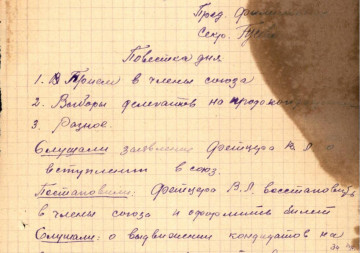 Пред.
Секр.
Повестка дня
1. Прием в члены союза
2. Выборы делегатов на
3. Разное.
Слушали заявление Фейцера В Л о
вступлении в союз.
Постановили: Фейцера В.Л восстановить
в члены союза и оформить билет
Слушали: о выдвижении кандидатов на